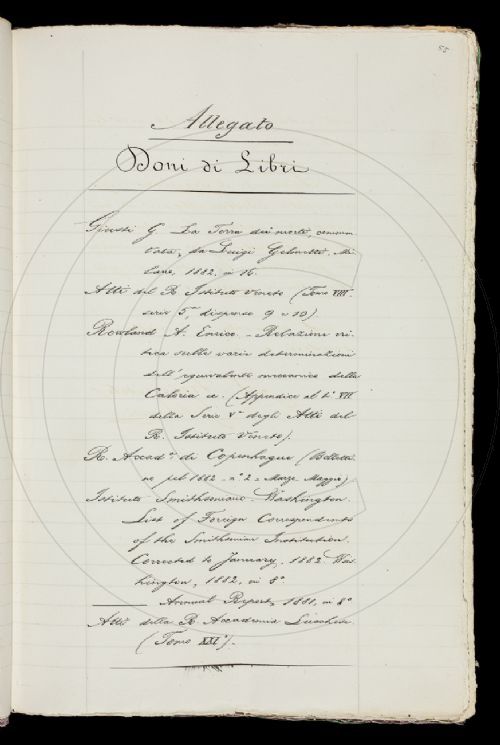 85
Allegato
Doni di Libri
Giusti G. La Terra dei morti, commen-
tata, da Luigi Mi-
lano, 1882, in 16.
Atti del R. Istituto Veneto (Tomo VIII
serie 5ª, dispense 9 e 10)
Rowland A. Enrico - Relazione cri-
tica sulle varie determinazioni
dell'equivalente meccanico della
Caloria ec. (Appendice al t.º VII
della Serie Vª degli Atti del
R. Istituto Veneto).
R. Accad.ª di Copenhague (Bolletti-
no pel 1882 - nº 2 - Marzo Maggio)
Istituto Smithsoniano Washington.
List of Foreign Correspondents
of the Smithsonian Institution.
Corrected to January, 1882 Was-
hington, 1882, in 8º
——— Annual Report, 1880, in 8º
Atti della R. Accademia Lucchese
(Tomo XXIº).